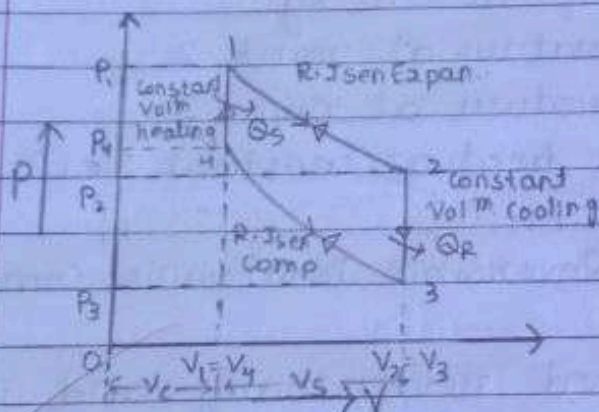 1
P₁
R.Isen Expan.
Constant
Volᵐ
heating
Qs
P₄
4
P
2
P₂
Constant
Volᵐ Cooling
R.Isen
Comp
QR
P₃
3
O
V₁=V₄
V₂=V₃
Vc
Vs
V